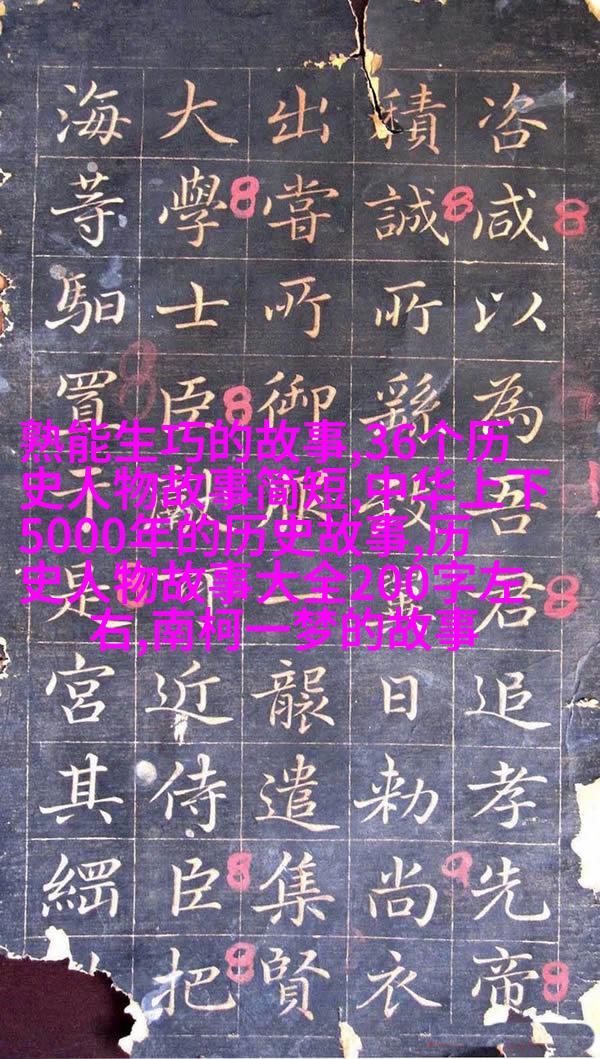 咨咸以為吾君追孝先帝
積誠所繇致日勑尚衣
出嘗所御服一襲遣集賢
大學士臣近侍臣把
海等馹置于是宮其
熟能生巧的故事,36个历
史人物故事简短,中华上下
5000年的历史故事,历
史人物故事大全200字左
右,南柯一梦的故事